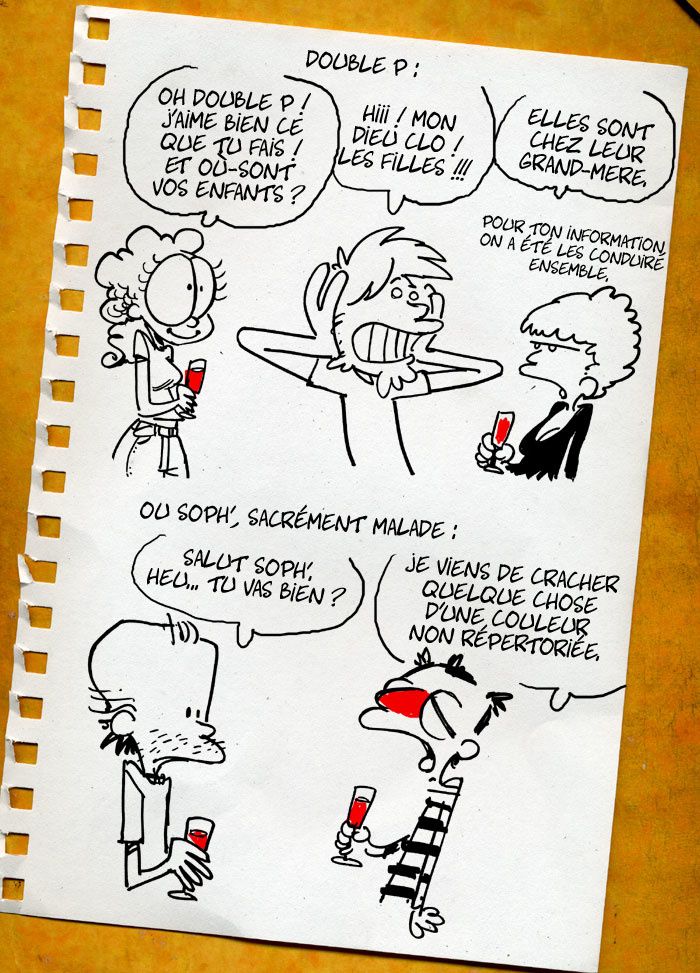 DOUBLE P :
OH DOUBLE P !
J'AIME BIEN CE
QUE TU FAIS !
ET OÙ-SONT
VOS ENFANTS ?
HIII ! MON
DIEU CLO !
LES FILLES !!!
ELLES SONT
CHEZ LEUR
GRAND-MERE.
POUR TON INFORMATION,
ON A ÉTÉ LES CONDUIRE
ENSEMBLE.
OU SOPH', SACRÉMENT MALADE :
SALUT SOPH'.
HEU... TU VAS BIEN ?
JE VIENS DE CRACHER
QUELQUE CHOSE
D'UNE COULEUR
NON RÉPERTORIÉE.